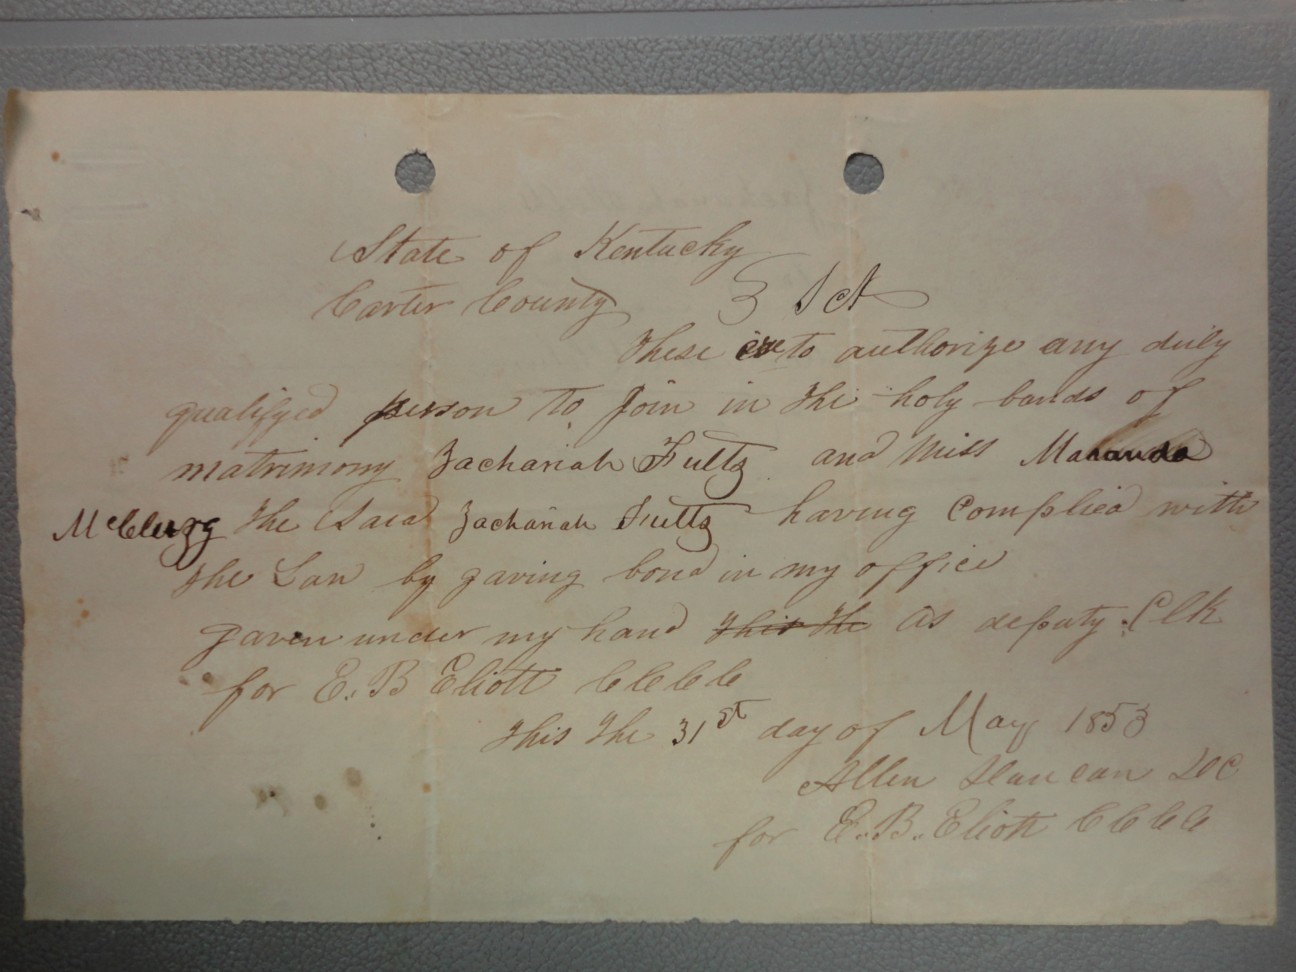 State of Kentucky
Carter County } Sct
These are to authorize any duly
qualifyed person to Join in the holy bonds of
matrimony Zachariah Fultz and Miss Mananda
McClurg the Said Zachariah Fultz having Complied with
the Law by gaving bond in my office
gaven under my hand this the as deputy Clk
for E. B Eliott CCCC
this the 31st day of May 1853
Allen DC
for E. B. Eliott CCCC